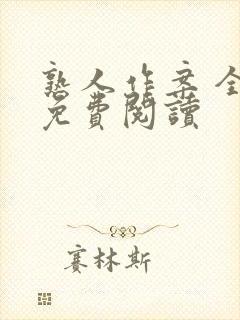 熟人作案全
免費閱讀
賽林斯